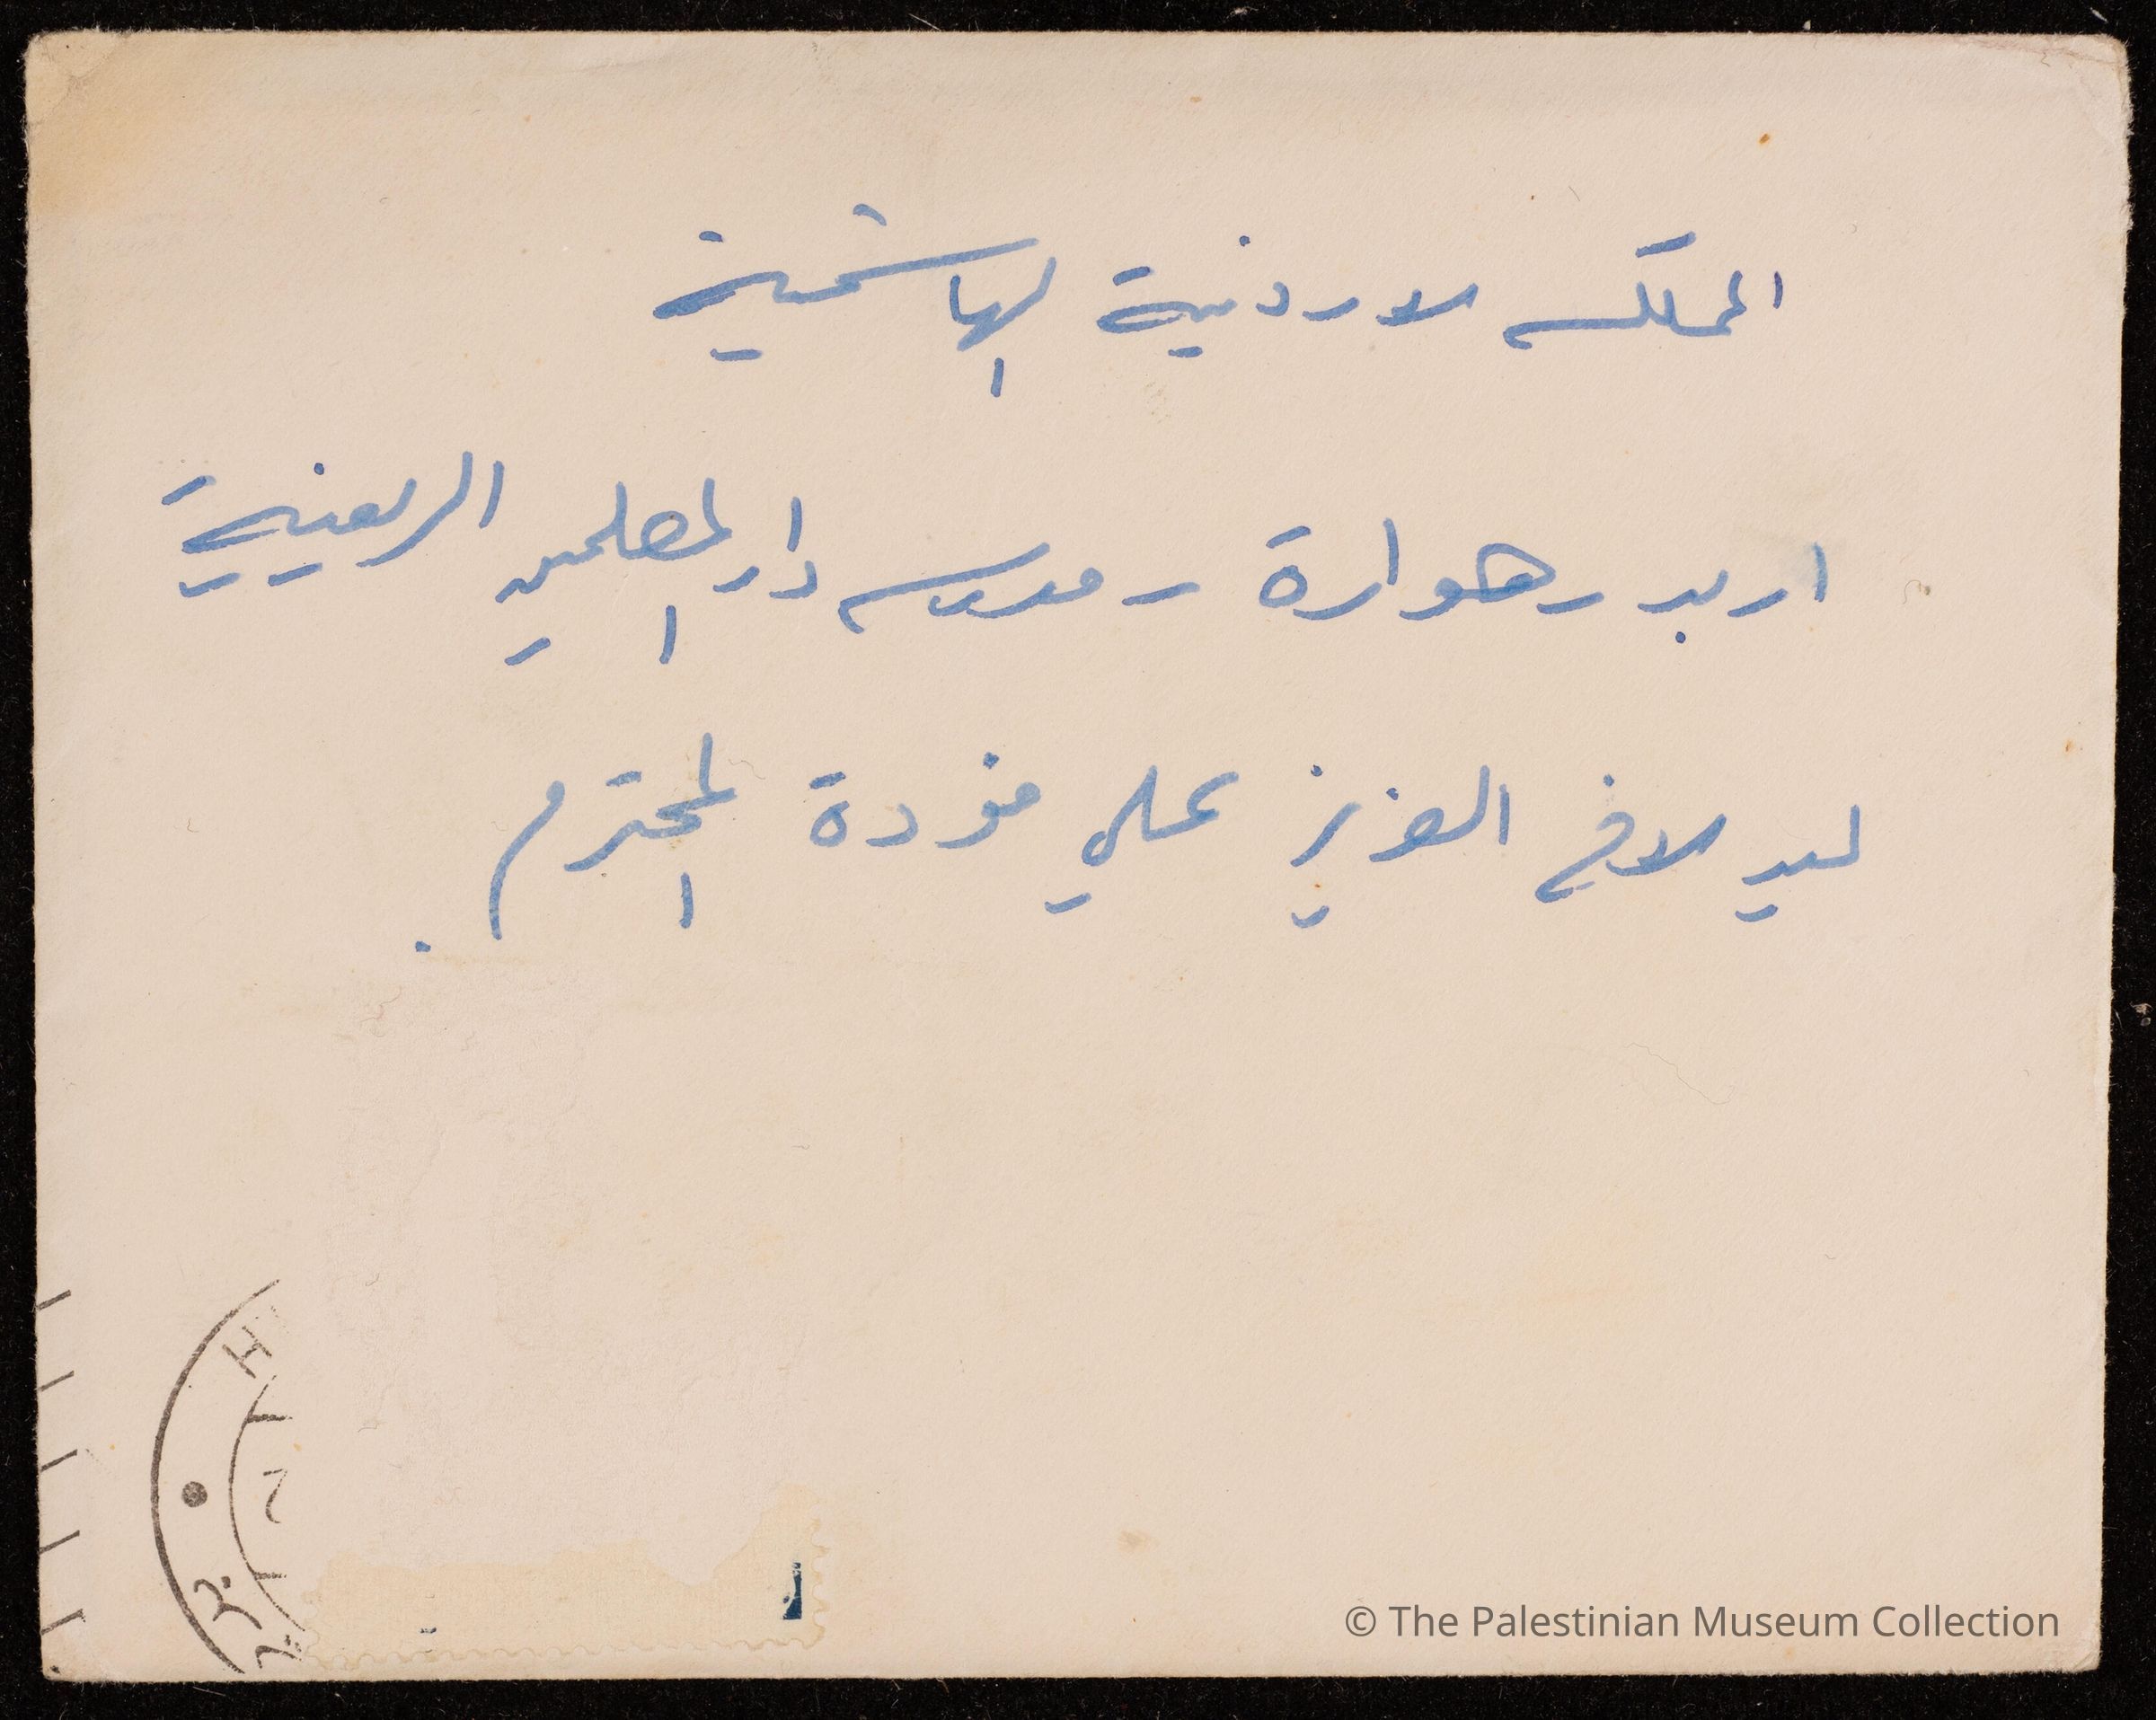 المملكه الاردنية الهاشمية
اربد - هوارة - مدرسه دار المعلمين الريفية
ليد الاخ العزيز علي فودة المحترم .
H
© The Palestinian Museum Collection